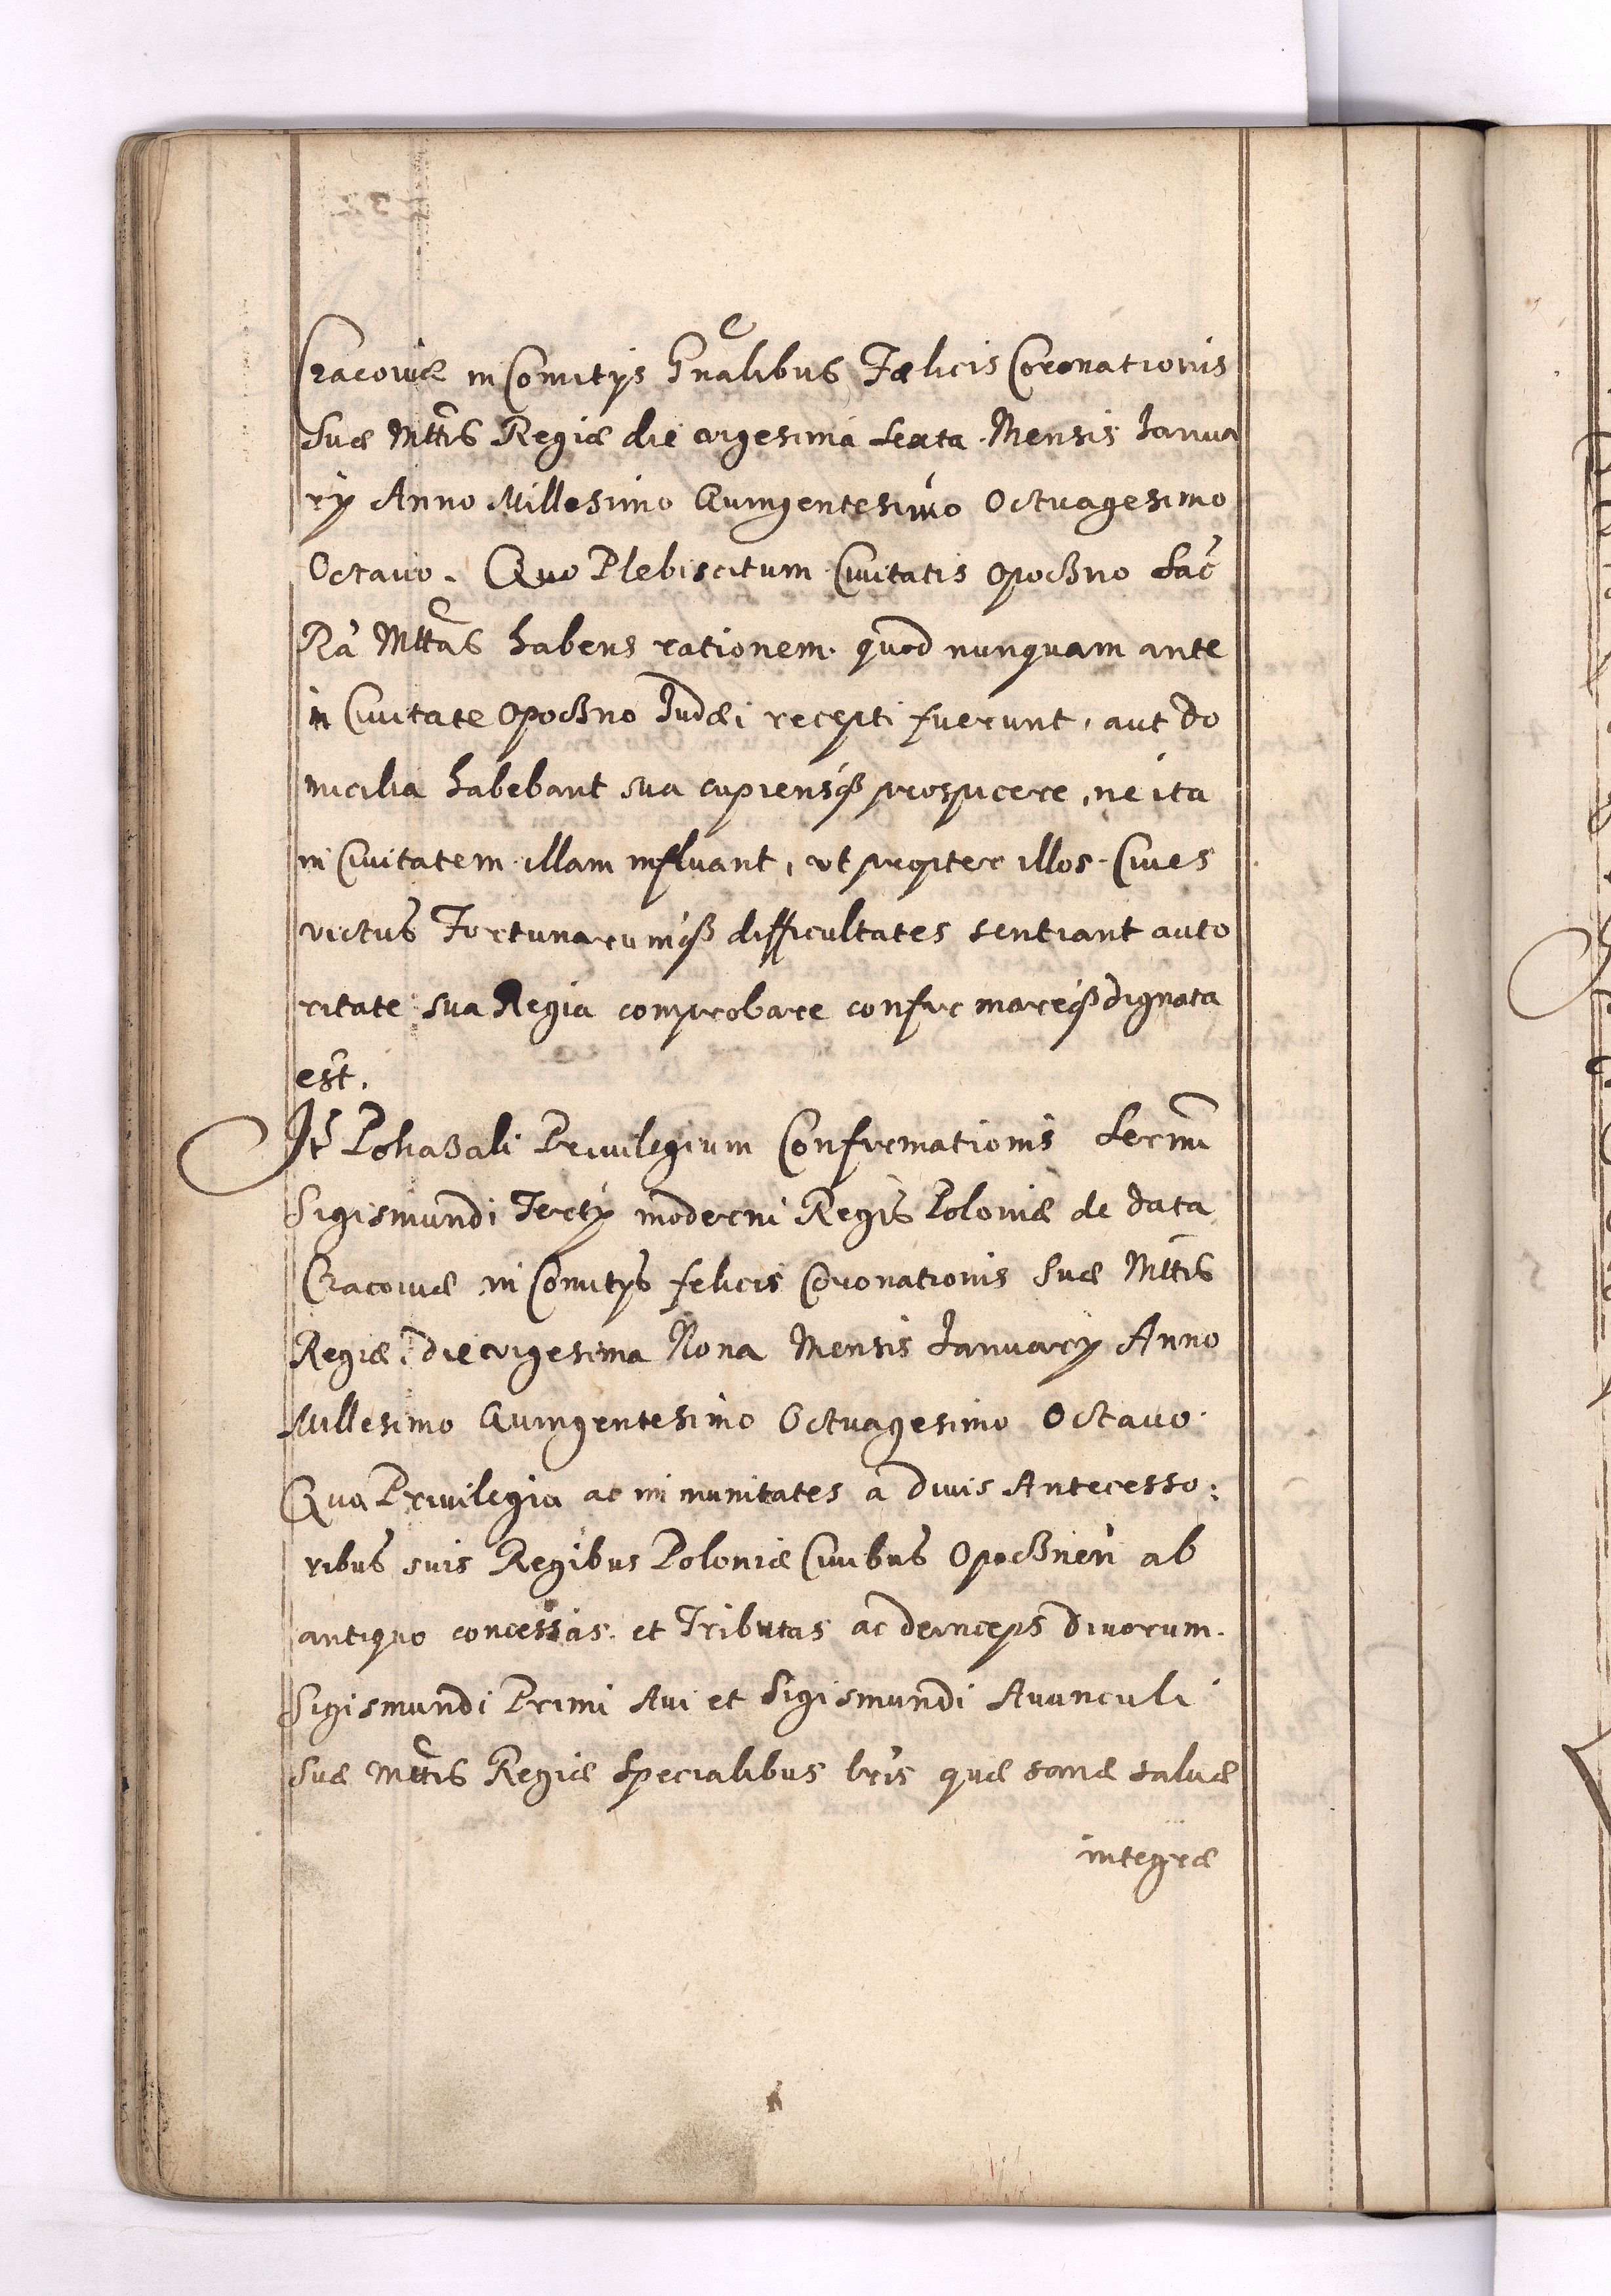 Cracoviæ in Comitÿs Gnalibus Fælicis Coronationis
Suæ Mttis Regiæ die vigesima Sexta Mensis Janua
rÿ Anno Millesimo Quingentesimo Octuagesimo
Octauo. Quo Plebiscitum Ciuitatis Opoczno Sac
Ra Mttas habens rationem. quod nunquam ante
in Ciuitate Opoczno Judæi recepti fuerunt, aut do
micilia habebant sua cupiensq3 prospicere, ne ita
in Ciuitatem illam influant, vt propter illos Ciues
victus Fortunarumq3 difficultates sentiant auto
ritate sua Regia comprobare confirmareq3 dignata
est.
Jt Pokazali Priuilegium Confirmationis Sermi
Sigismundi Tertÿ moderni Regis Poloniæ de data
Cracoviæ in Comitÿs felicis Coronationis Suæ Mttis
Regiæ, die vigesima Nona Mensis Januarÿ Anno
Millesimo Quingentesimo Octuagesimo Octauo.
Qua Priuilegia ac immunitates a diuis Antecesso:
ribus suis Regibus Poloniæ Ciuibus Opocznen ab
antiquo concessas et Tributas ac deinceps Diuorum.
Sigismundi Primi Aui et Sigismundi Auunculi
Suæ Mttis Regiæ Specialibus lris quæ sanæ saluæ
integræ